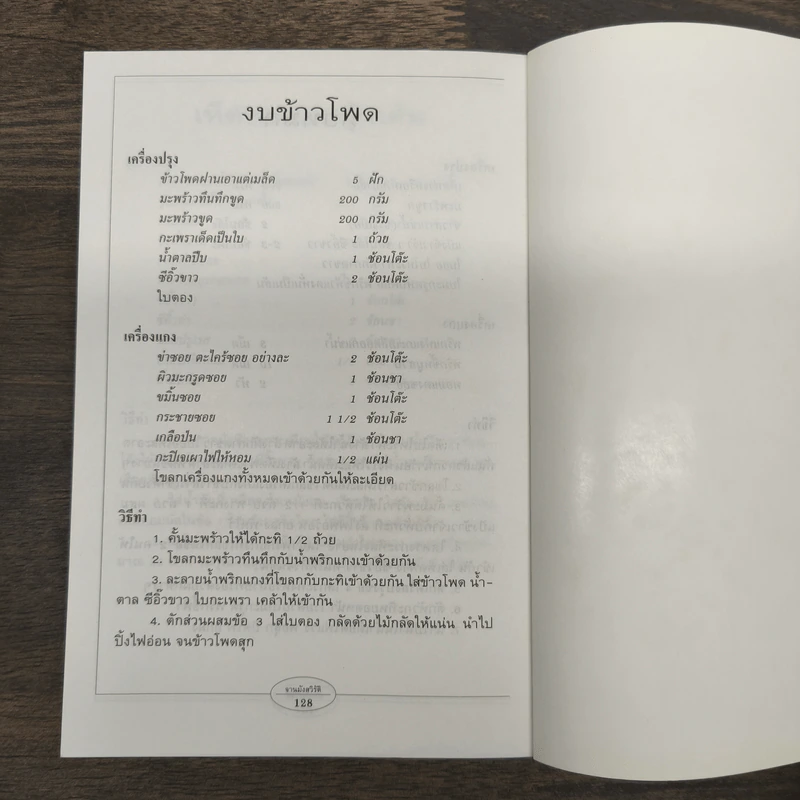 งบข้าวโพด
เครื่องปรุง
ข้าวโพดฝานเอาแต่เมล็ด 5 ฝัก
มะพร้าวทึนทึกขูด 200 กรัม
มะพร้าวขูด 200 กรัม
กะเพราเด็ดเป็นใบ 1 ถ้วย
น้ำตาลปีบ 1 ช้อนโต๊ะ
ซีอิ๊วขาว 2 ช้อนโต๊ะ
ใบตอง
เครื่องแกง
ข่าซอย ตะไคร้ซอย อย่างละ 2 ช้อนโต๊ะ
ผิวมะกรูดซอย 1 ช้อนชา
ขมิ้นซอย 1 ช้อนโต๊ะ
กระชายซอย 1 1/2 ช้อนโต๊ะ
เกลือป่น 1 ช้อนชา
กะปิเจเผาไฟให้หอม 1/2 แผ่น
โขลกเครื่องแกงทั้งหมดเข้าด้วยกันให้ละเอียด
วิธีทำ
1. คั้นมะพร้าวให้ได้กะทิ 1/2 ถ้วย
2. โขลกมะพร้าวทึนทึกกับน้ำพริกแกงเข้าด้วยกัน
3. ละลายน้ำพริกแกงที่โขลกกับกะทิเข้าด้วยกัน ใส่ข้าวโพด น้ำ-
ตาล ซีอิ๊วขาว ใบกะเพรา เคล้าให้เข้ากัน
4. ตักส่วนผสมข้อ 3 ใส่ใบตอง กลัดด้วยไม้กลัดให้แน่น นำไป
ปิ้งไฟอ่อน จนข้าวโพดสุก
จานมังสวิรัติ
128